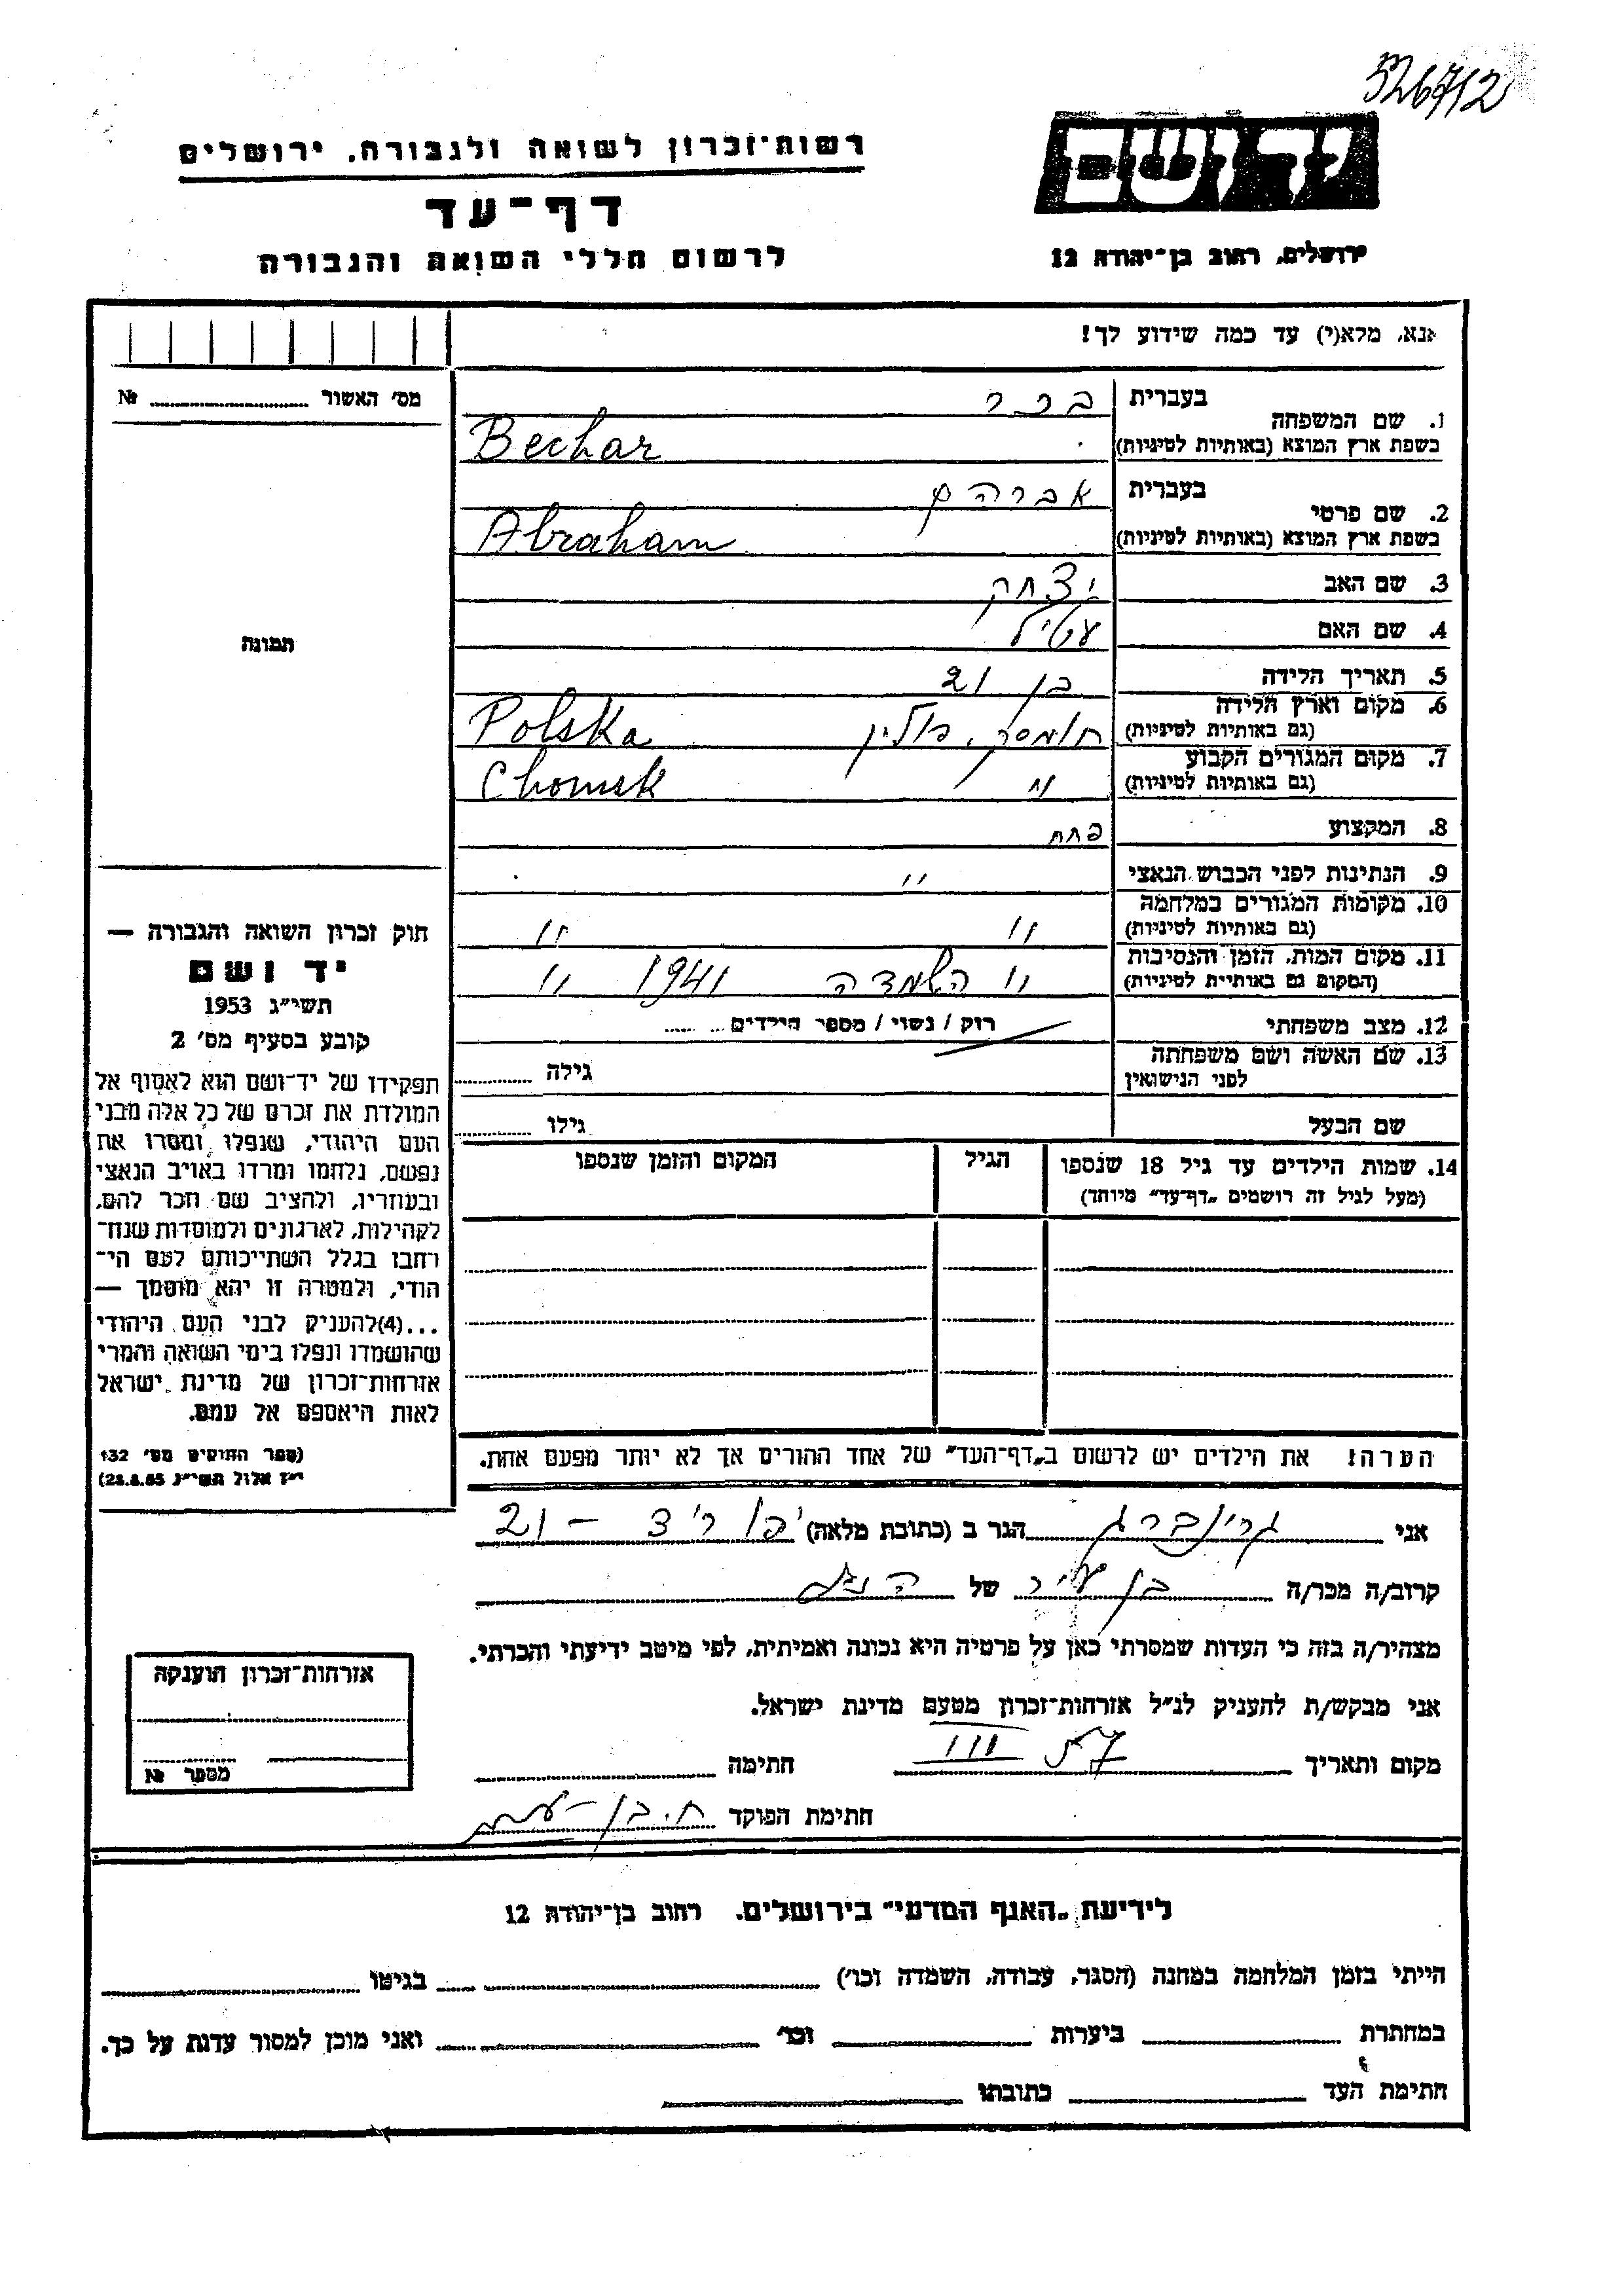 326712
יד ושם
רשות־זכרון לשואה ולגבורה, ירושלים
דף־עד
לרשום חללי השואה והגבורה
ירושלים, רחוב בן־יהודה 12
אנא, מלא(י) עד כמה שידוע לך!
מס׳ האשור №
1. שם המשפחה בעברית בכר
בשפת ארץ המוצא (באותיות לטיניות) Bechar
2. שם פרטי בעברית אברהם
בשפת ארץ המוצא (באותיות לטיניות) Abraham
3. שם האב יצחק
4. שם האם
תמונה
5. תאריך הלידה בן 21
6. מקום וארץ הלידה
(גם באותיות לטיניות) חומסק, פולין Polska
7. מקום המגורים הקבוע
(גם באותיות לטיניות) " Chomsk
8. המקצוע פחח
9. הנתינות לפני הכבוש הנאצי "
10. מקומות המגורים במלחמה
(גם באותיות לטיניות) " "
11. מקום המות, הזמן והנסיבות
(המקום גם באותיות לטיניות) " השמדה 1941 "
12. מצב משפחתי רוק / נשוי / מספר הילדים
13. שם האשה ושם משפחתה
לפני הנישואין גילה
שם הבעל גילו
14. שמות הילדים עד גיל 18 שנספו הגיל המקום והזמן שנספו
(מעל לגיל זה רושמים „דף־עד״ מיוחד)
חוק זכרון השואה והגבורה —
יד ושם
תשי״ג 1953
קובע בסעיף מס׳ 2
תפקידו של יד־ושם הוא לאסוף אל
המולדת את זכרם של כל אלה מבני
העם היהודי, שנפלו ומסרו את
נפשם, נלחמו ומרדו באויב הנאצי
ובעוזריו, ולהציב שם וזכר להם,
לקהילות, לארגונים ולמוסדות שנח־
רחבו בגלל השתייכותם לעם הי־
הודי, ולמטרה זו יהא מוסמך —
...(4)להעניק לבני העם היהודי
שהושמדו ונפלו בימי השואה והמרי
אזרחות־זכרון של מדינת ישראל
לאות היאספם אל עמם.
(ספר החוקים מס׳ 132
י״ז אלול תשי״ג 28.8.53)
הערה! את הילדים יש לרשום ב„דף־העד״ של אחד ההורים אך לא יותר מפעם אחת.
אני גרינברג הגר ב (כתובת מלאה) יפו 21 –
קרוב/ה מכר/ה בן עיר של הנ״ל
מצהיר/ה בזה כי העדות שמסרתי כאן על פרטיה היא נכונה ואמיתית, לפי מיטב ידיעתי והכרתי.
אני מבקש/ת להעניק לנ״ל אזרחות־זכרון מטעם מדינת ישראל.
מקום ותאריך III 57 חתימה
חתימת הפוקד ח. בן־עמ
אזרחות־זכרון הוענקה
מספר №
לידיעת „האגף המדעי״ בירושלים. רחוב בן־יהודה 12
הייתי בזמן המלחמה במחנה (הסגר, עבודה, השמדה וכו׳) בגיטו
במחתרת ביערות וכו׳ ואני מוכן למסור עדות על כך.
חתימת העד כתובתו